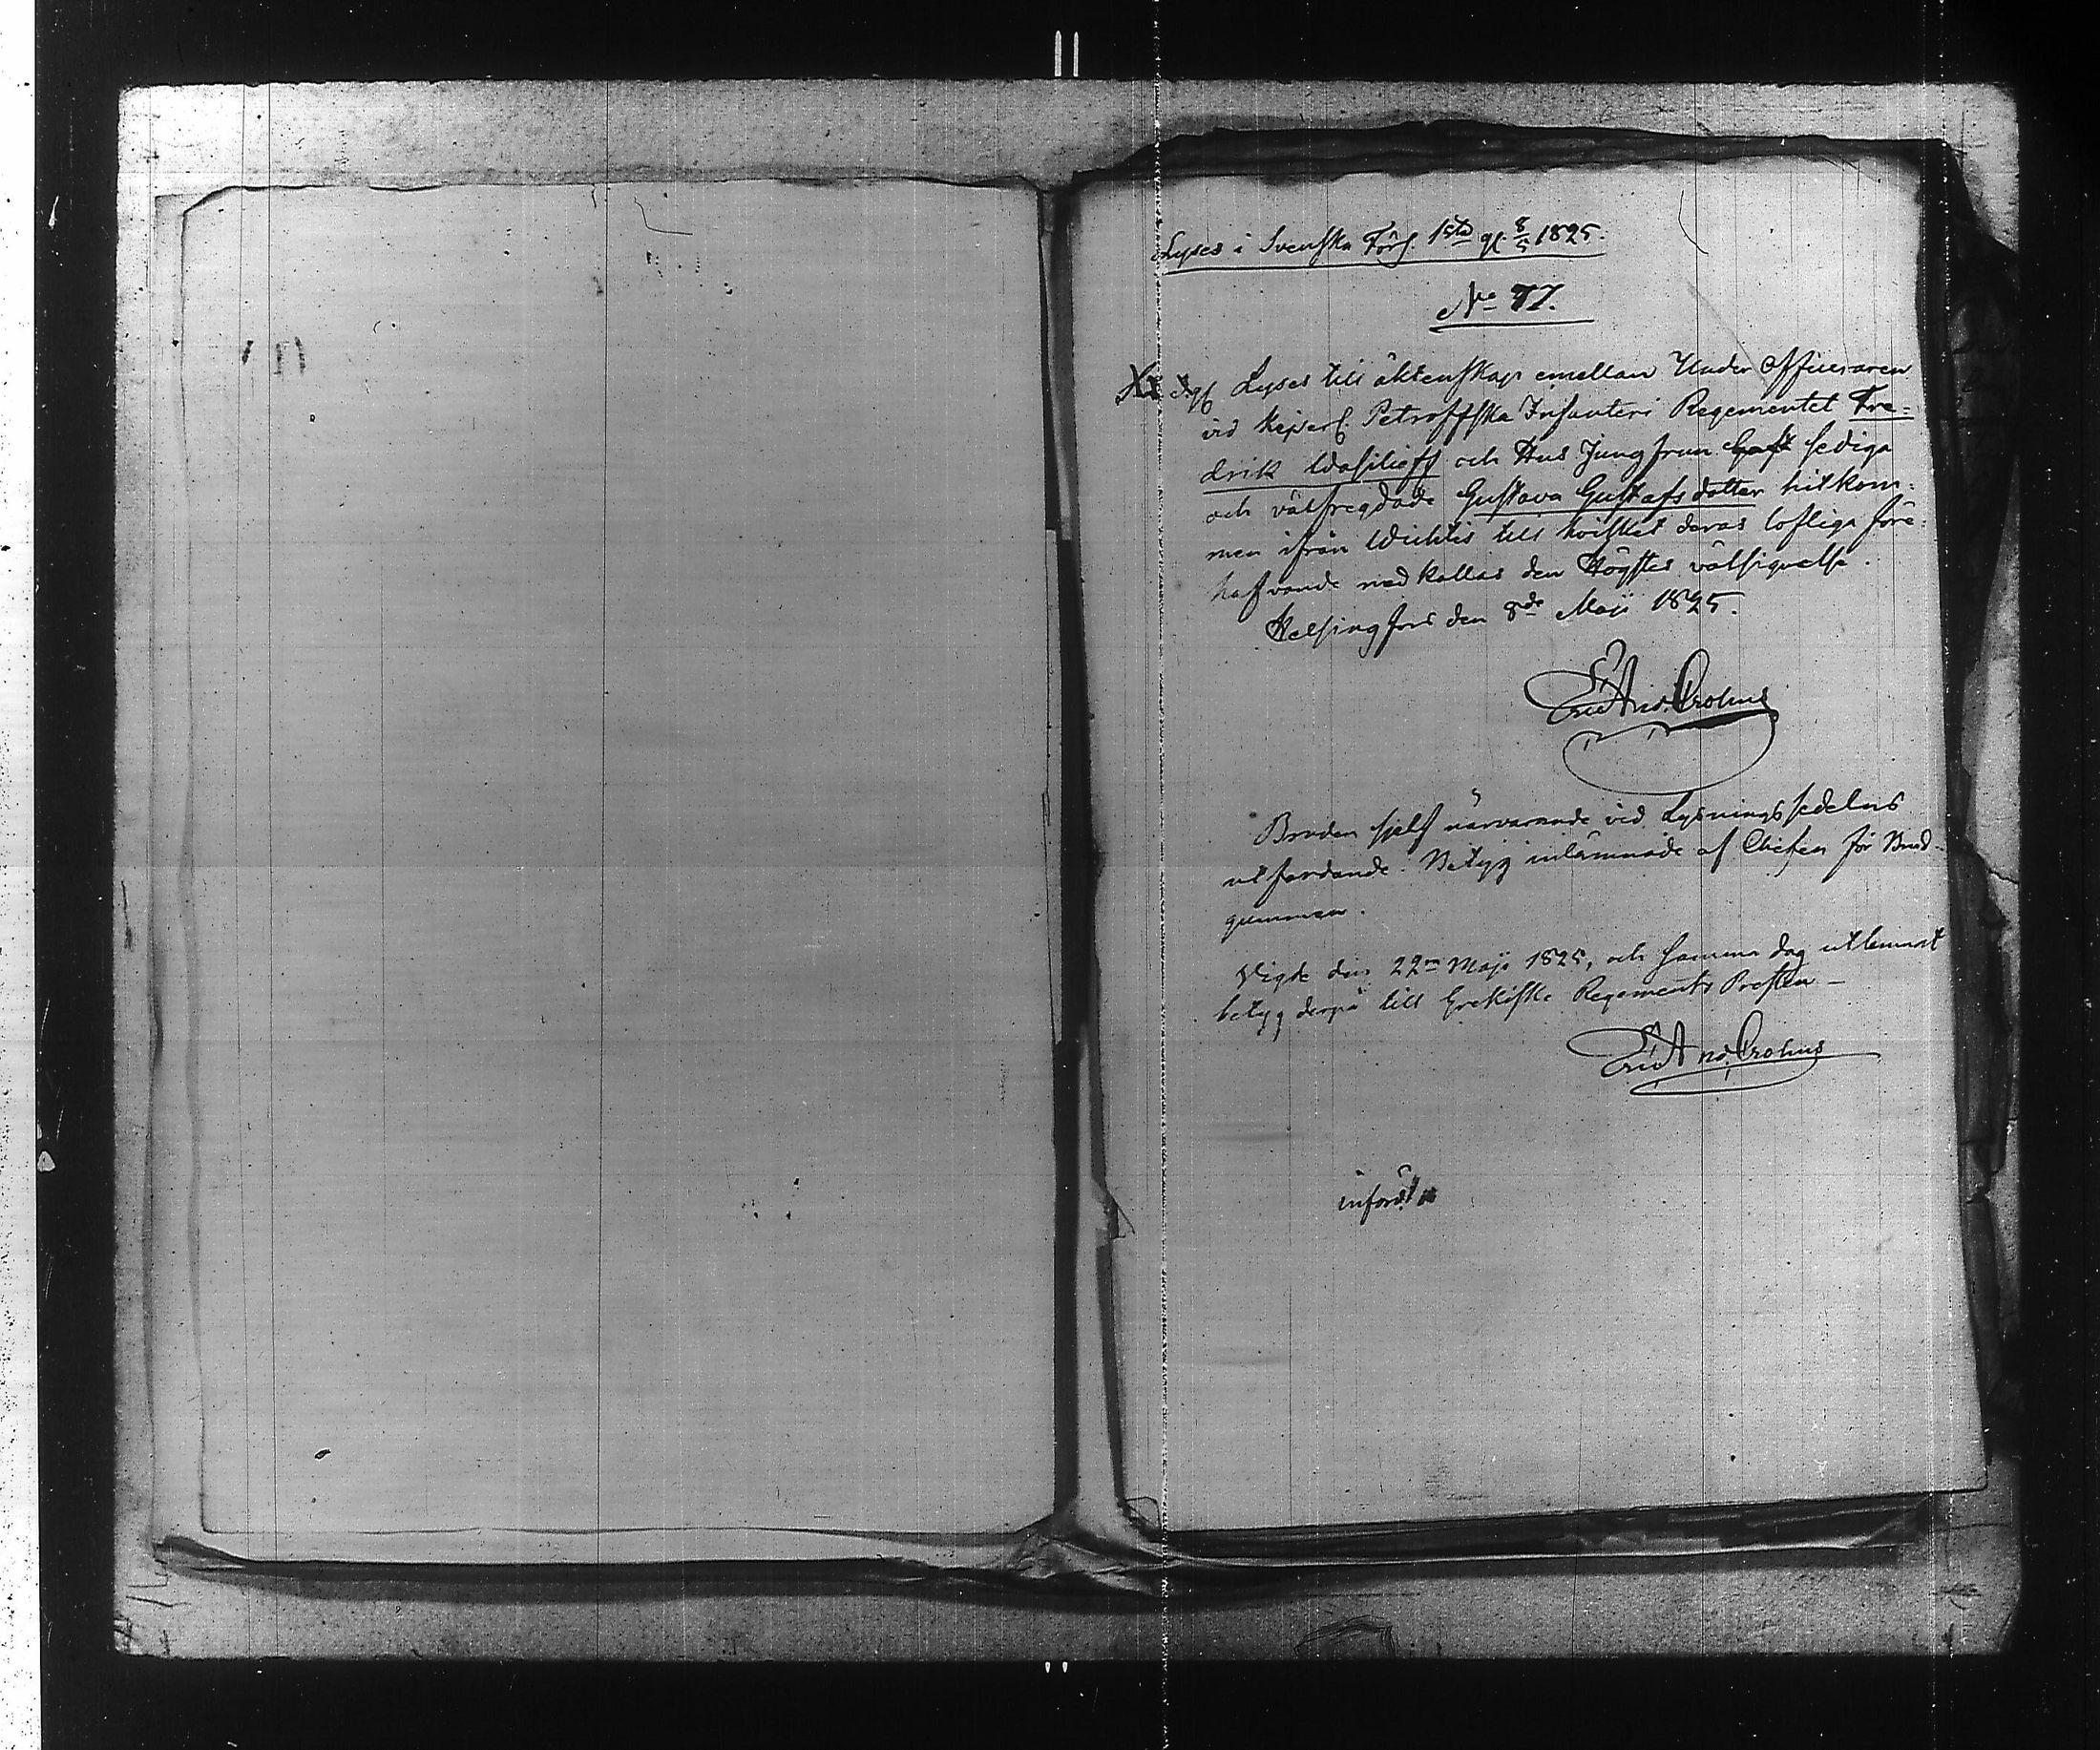 Lyses i Svenska Förs. 1sta g. 8/5 1825.
No 77.
Lyses till äktenskap emellan Under Officeraren
vid Kejserl. Petroffska Infanteri Regementet Fre-
drik Wasilieff och Hus Jungfrun ledige
och välfregdade Gustava Gustafs dotter hitkom-
men ifrån Wichtis till hvilket deras lofliga före-
hafvande nedkallas den Högstes välsignelse.
Helsingfors den 8de Maji 1825.
Eric And. Crohns
Bruden sjelf närvarande vid Lysningssedelns
utfärdande. Betyg inlämnade af Chefen för Brud-
gummen.
Vigde den 22en Maji 1825, och samma dag utlemnat
betyg derpå till Grekiske Regements Presten -
Eric And. Crohns
införd